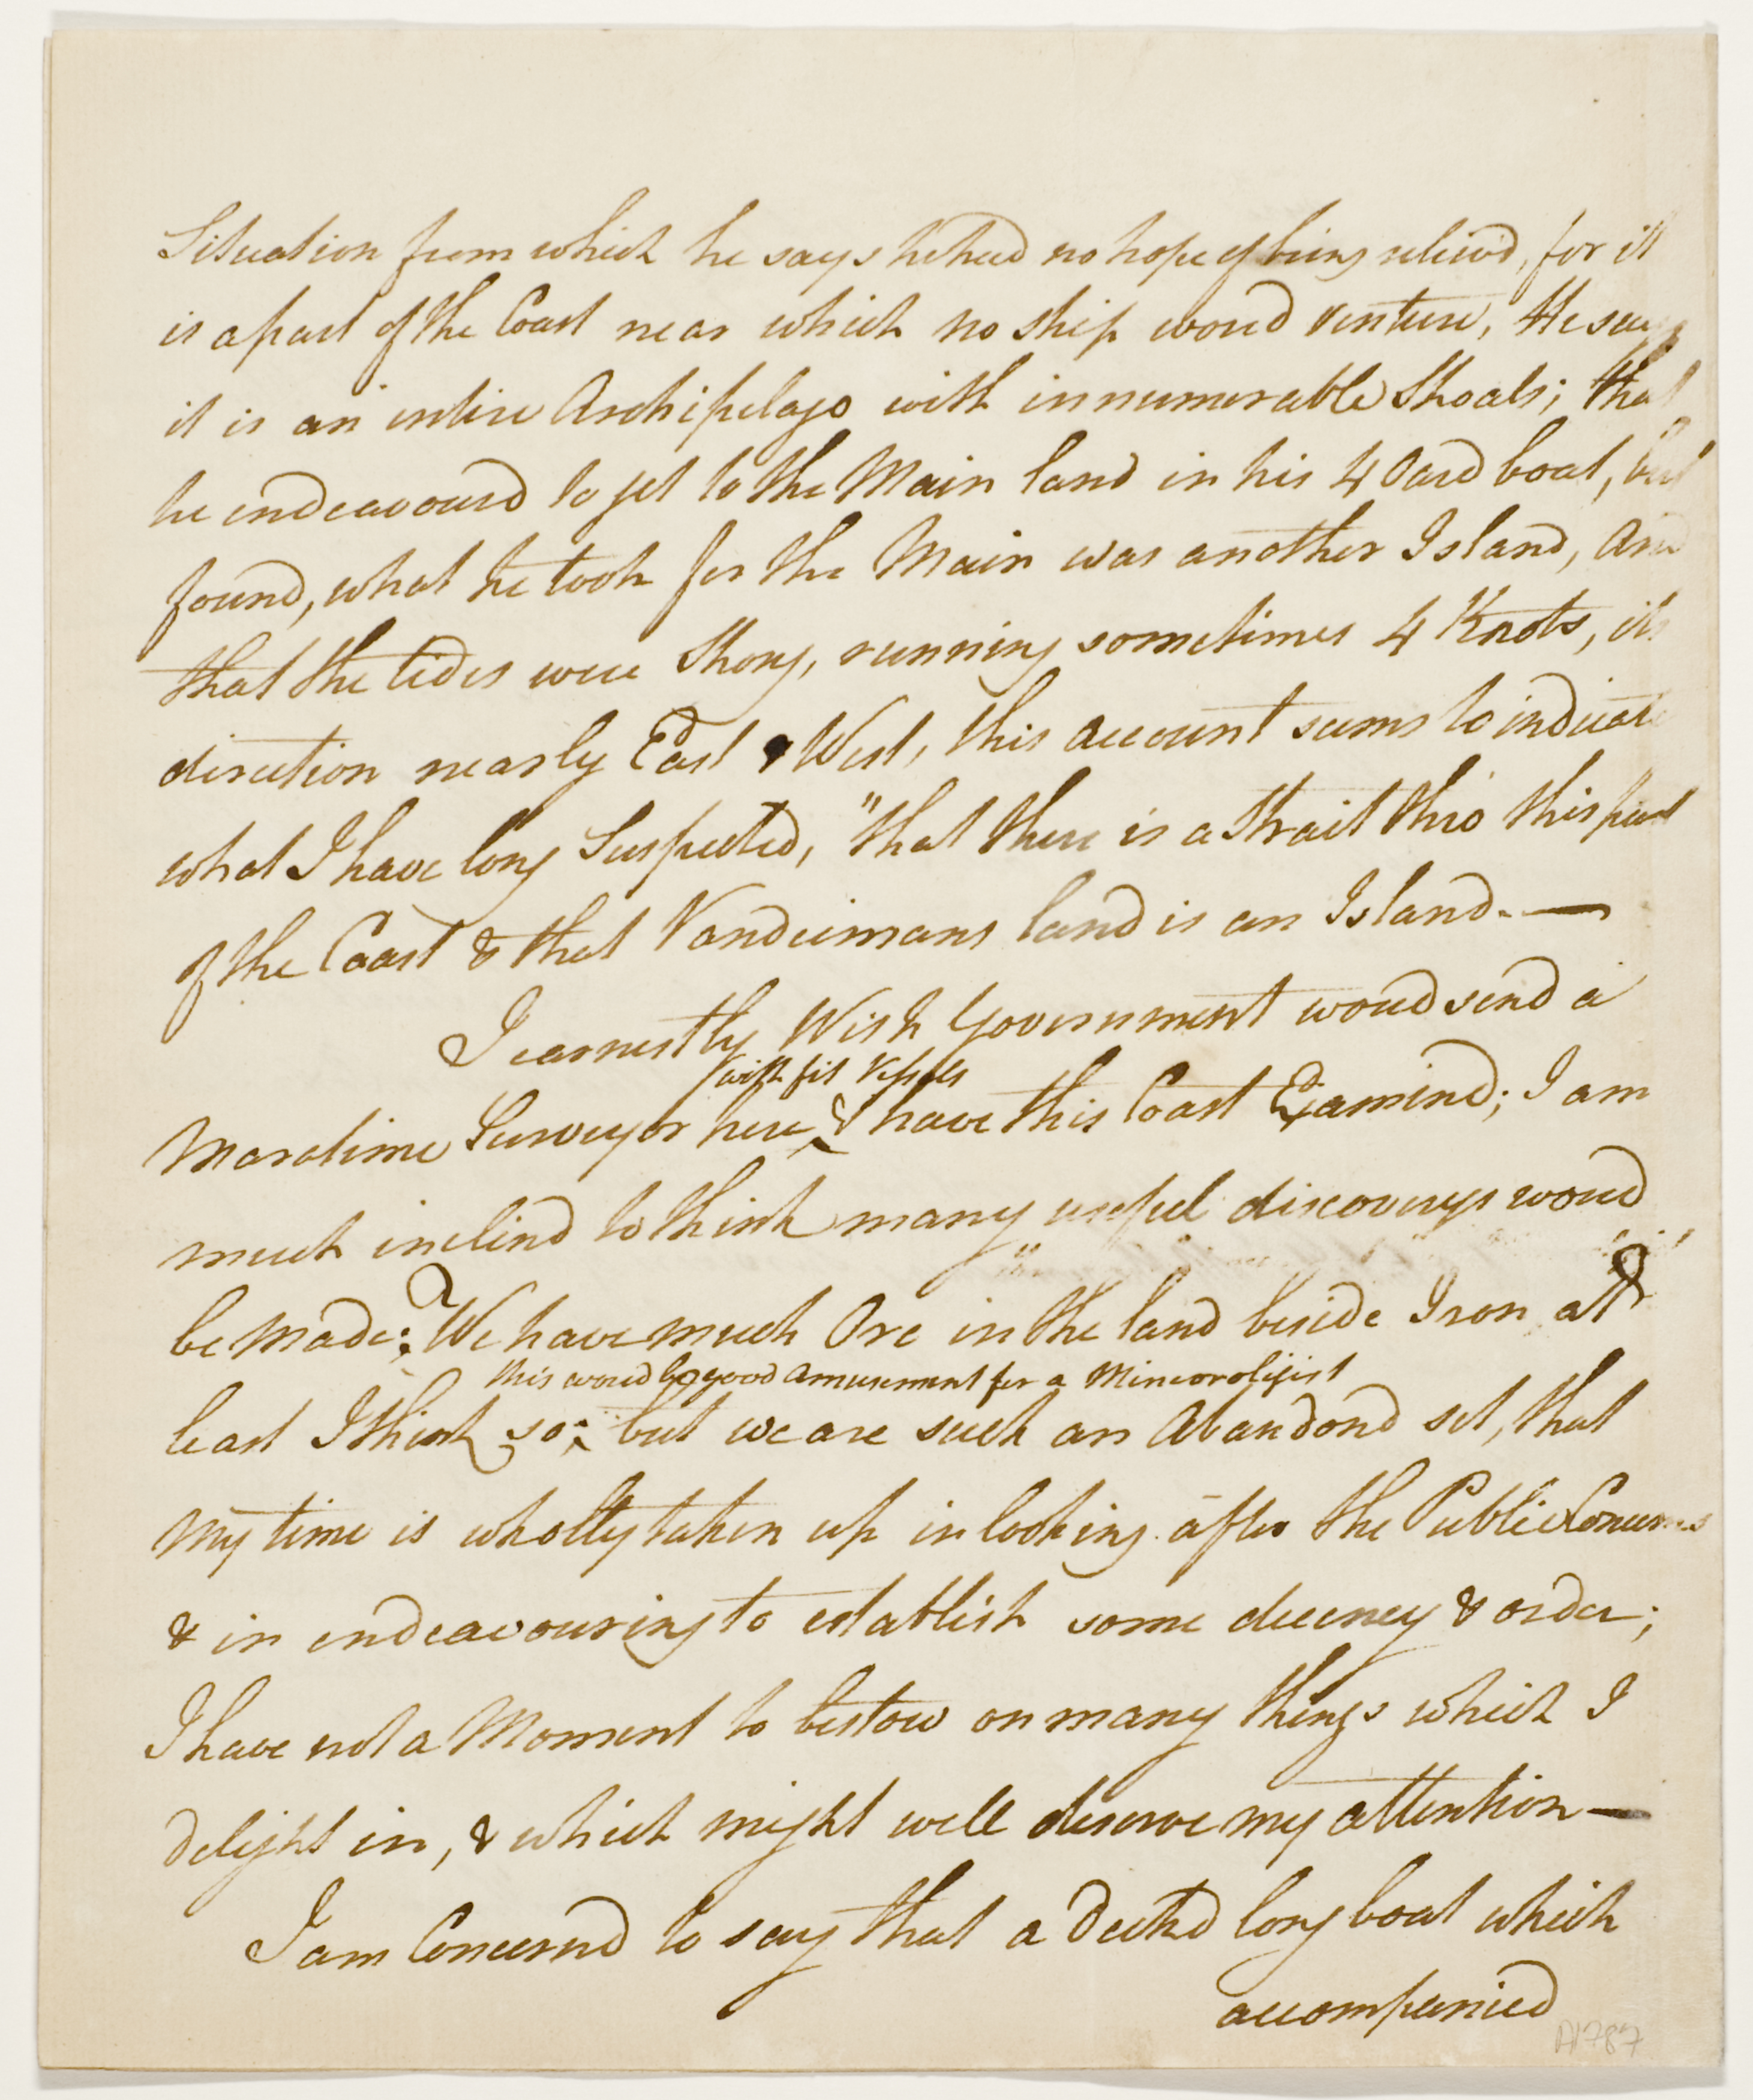 Situation from which he says he had no hope of being relievd, for it
is a part of the Coast near which no ship woud venture, He says
it is an entire Archipelago with innumerable Shoals; that
he endeavourd to get to the Main land in his 4 Oard boat, but
found, what he took for the Main was another Island, and
that the tides were Strong, running sometimes 4 Knots, its
direction nearly East & West, this account seems to indicate
what I have long Suspected, "that there is a Strait thro' this part
of the Coast & that Vandeimans land is an Island. —
I earnestly Wish Government woud send a
with fit Vessels
Maratime Surveyor here & have this Coast Examind; I am
much inclind to think many useful discoverys woud
be made: We have much Ore in the land beside Iron at
this woud be good Amusement for a Mineorologist
least I think so; but we are such an Abandond set, that
my time is wholly taken up in looking after the Public Concerns
& in endeavouring to establish some decency & order;
I have not a Moment to bestow on many things which I
delight in, & which might well deserve my attention —
I am Concernd to say that a Deckd long boat which
accompanied
A1787